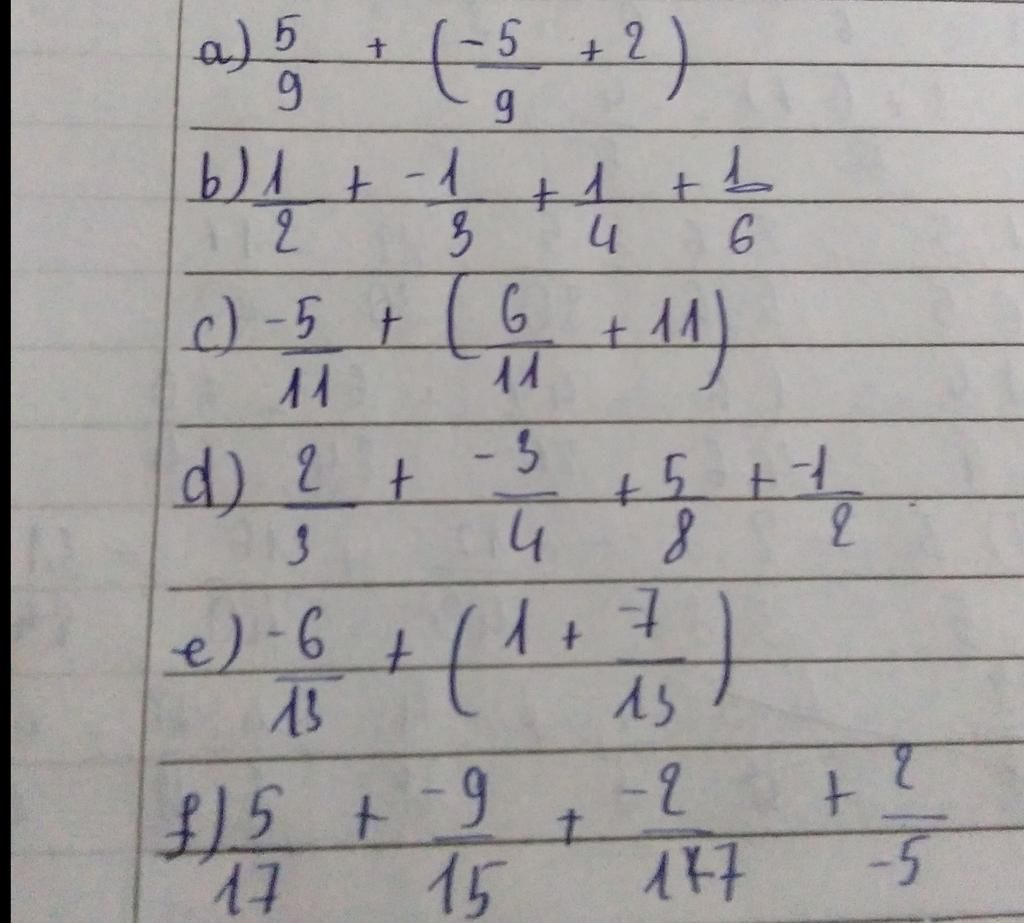 a) 5/9 + (-5/9 + 2)
b) 1/2 + -1/3 + 1/4 + 1/6
c) -5/11 + (6/11 + 11)
d) 2/3 + -3/4 + 5/8 + -1/2
e) -6/13 + (1 + -7/13)
f) 5/17 + -9/15 + -2/17 + 2/-5